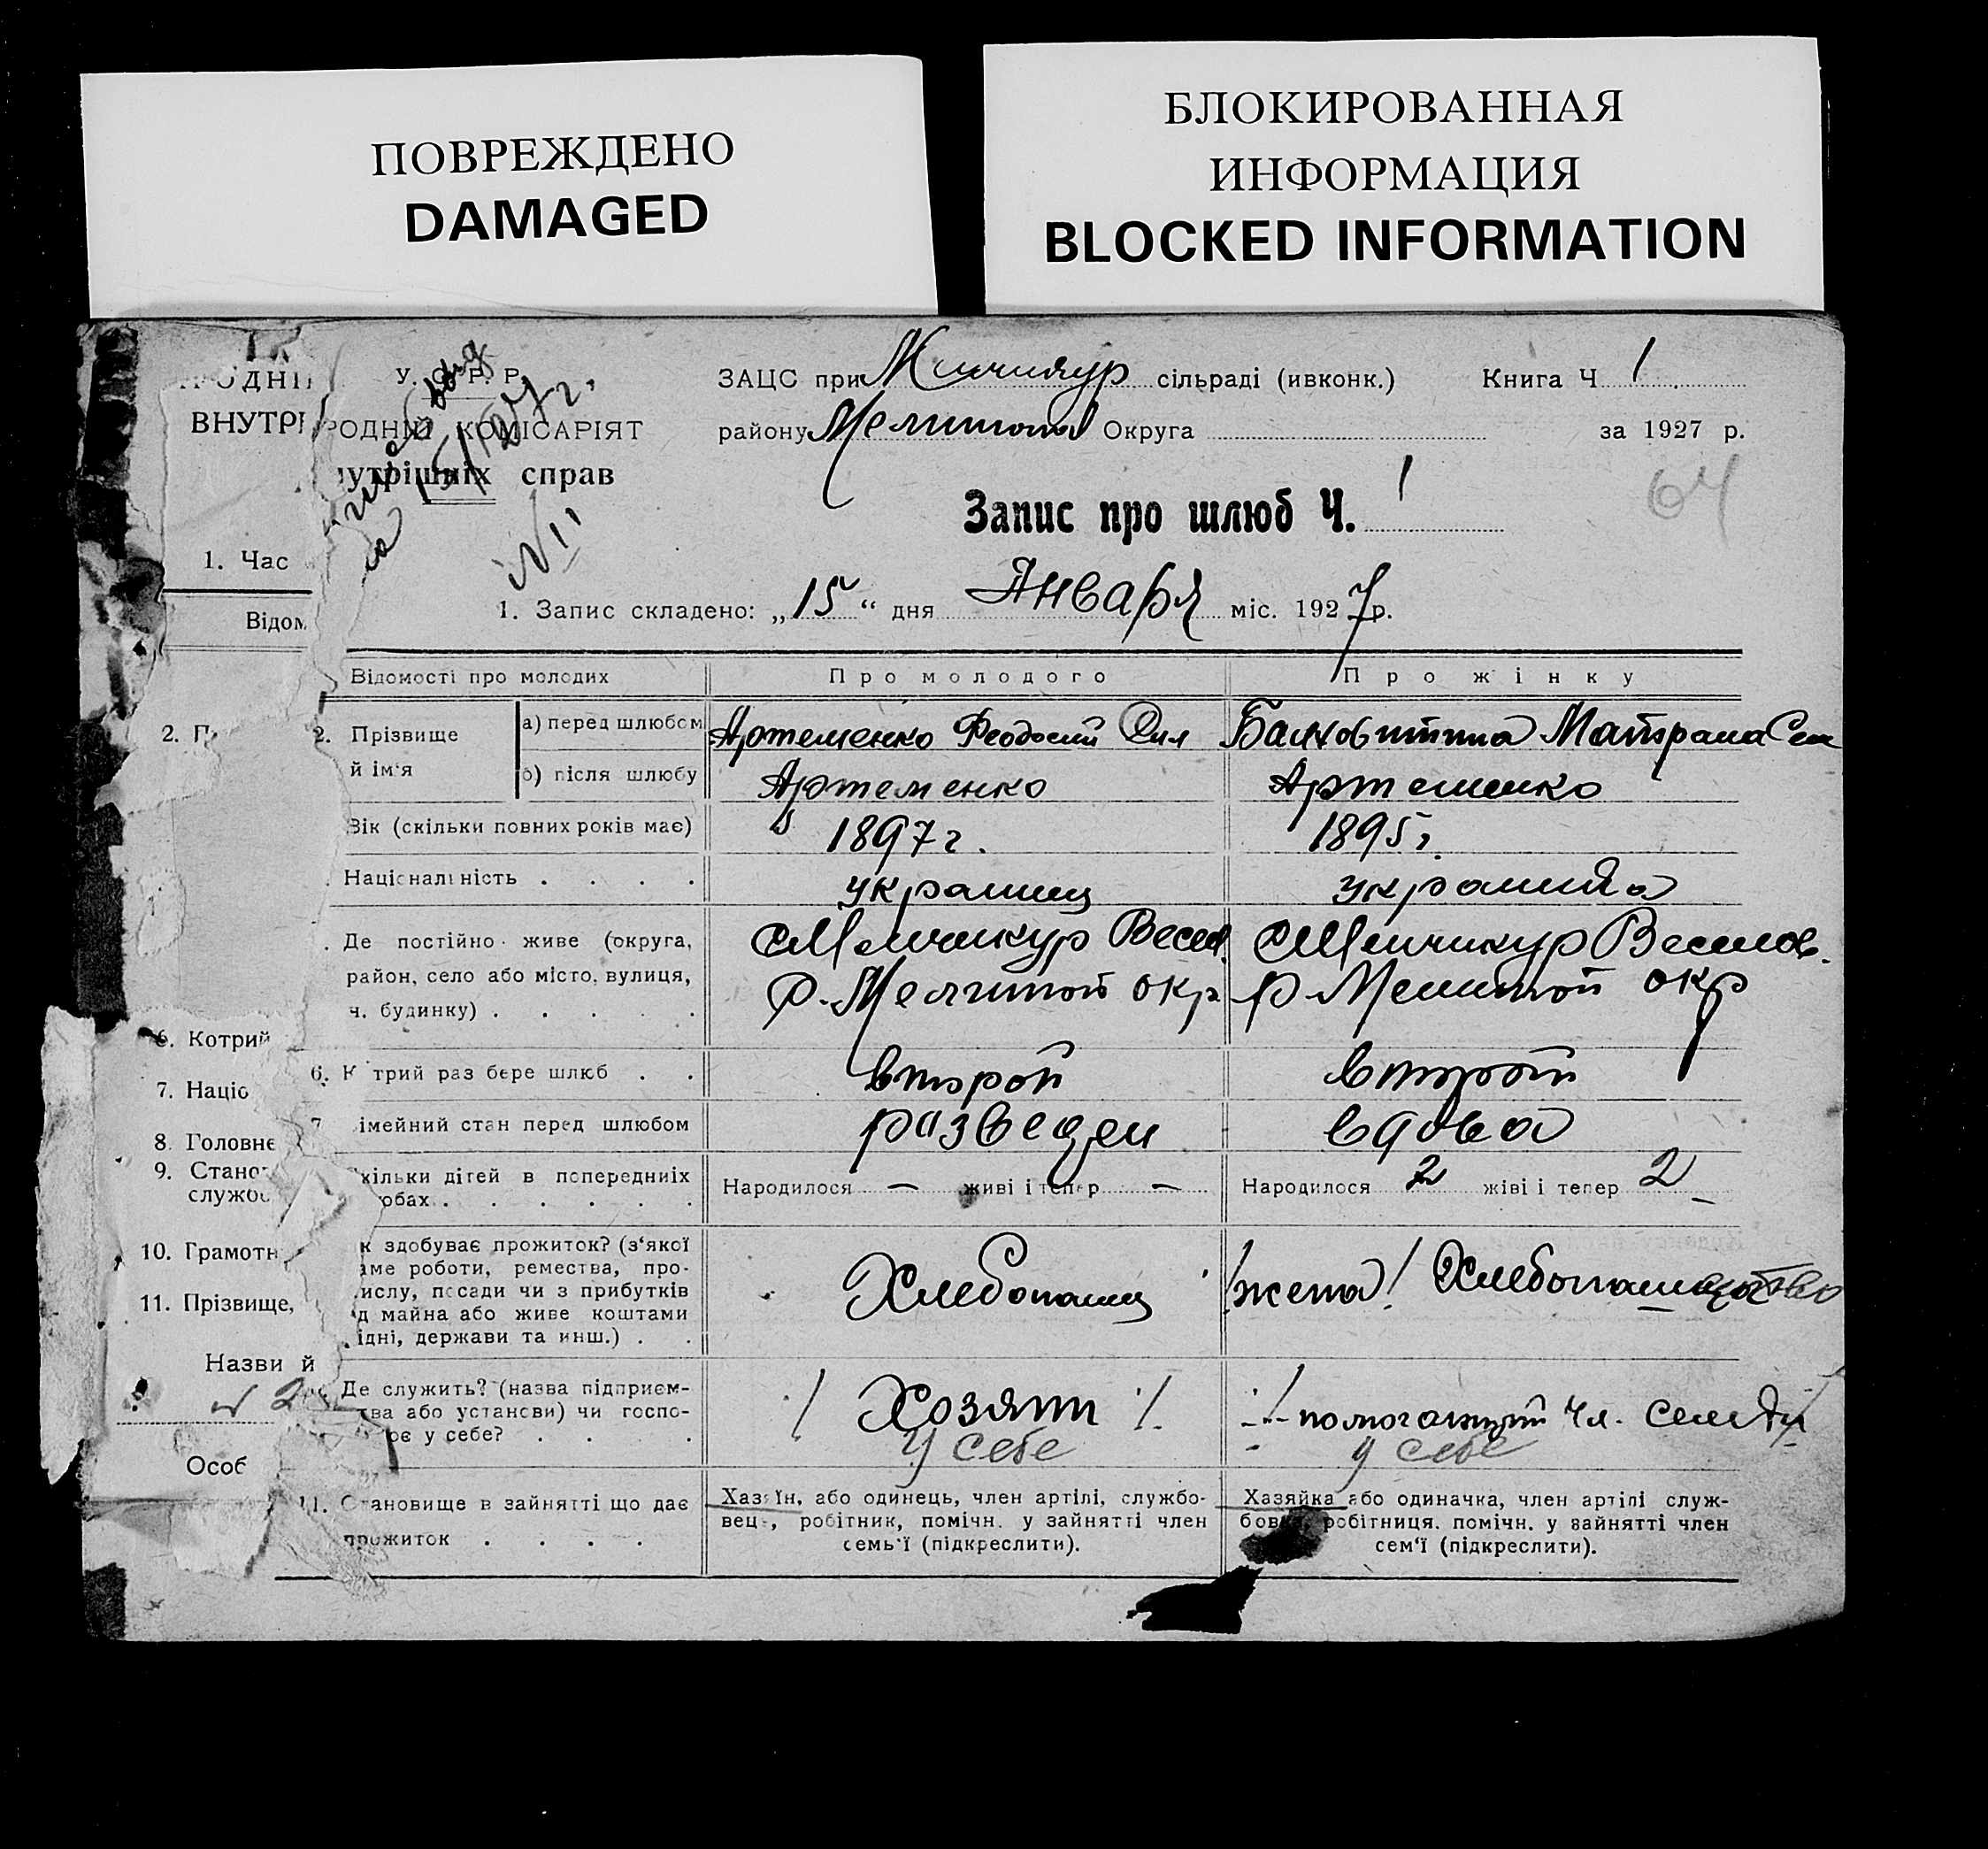 ПОВРЕЖДЕНО
DAMAGED
БЛОКИРОВАННАЯ
ИНФОРМАЦИЯ
BLOCKED INFORMATION
У. С. Р. Р.
РОДНІЙ КОМІСАРІЯТ
внутрішніх справ
15/I 27 г.
N 1
ЗАЦС при Минчикур сільраді (ивконк.) Книга Ч 1
району Мелитопол Округа за 1927 р.
64
Запис про шлюб Ч. 1
1. Запис складено: „15“ дня Января міс. 1927 р.
1. Час
Відом
6. Котрий
7. Націо
8. Головне
9. Стано
служб
10. Грамотн
11. Прізвище,
Назви й
Особ
Відомості про молодих Про молодого Про жінку
2. Прізвище й ім‘я а) перед шлюбом Артеменко Феодосий Матрона Сем
б) після шлюбу Артеменко Артеменко
Вік (скільки повних років має) 1897 г. 1895 г.
Національність украинец украинка
Де постійно живе (округа, с Менчикур Весел. с Менчикур Веселов.
район, село або місто, вулиця, р. Мелитоп окр р Мелитоп окр
ч. будинку)
6. Котрий раз бере шлюб второй второй
7. сімейний стан перед шлюбом разведен вдова
скільки дітей в попередніх Народилося — живі і тепер — Народилося 2 жіві і тепер 2
шлюбах
як здобуває прожиток? (з‘якої
саме роботи, ремества, про-
мислу, посади чи з прибутків Хлебопашец /жена/ Хлебопашество
від майна або живе коштами
рідні, держави та инш.)
Де служить? (назва підприєм-
ства або установи) чи госпо- / Хозяин /. помогающий чл. семьи
дарює у себе? у себе у себе
11. Становище в зайнятті що дає Хазяїн, або одинець, член артілі, службо- Хазяйка або одиначка, член артілі служ-
прожиток вець, робітник, помічн. у зайнятті член бовка, робітниця. помічн. у зайнятті член
семь‘ї (підкреслити). сем‘ї (підкреслити).